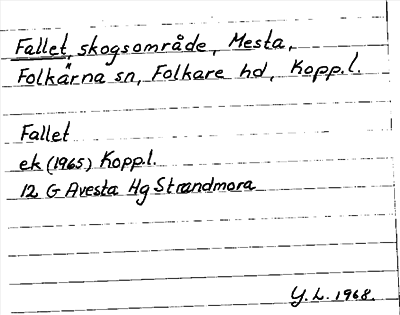 Fallet, skogsområde, Mesta,
Folkärna sn, Folkare hd, Kopp.l.
Fallet
ek (1965) Kopp.l.
12 G Avesta Hg Strandmora
Y.L. 1968.